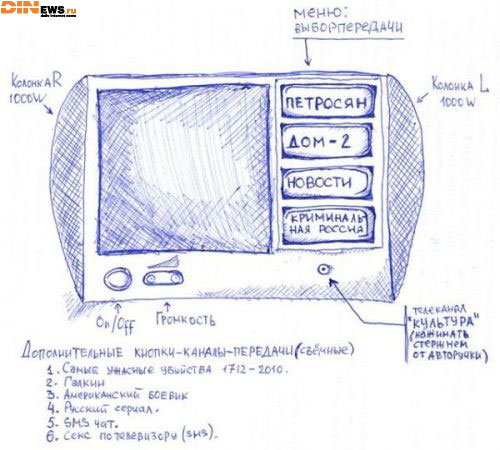 DINEWS.RU
Daily Internet News
МЕНЮ:
ВЫБОР ПЕРЕДАЧИ
КОЛОНКА R
1000W
КОЛОНКА L
1000W
ПЕТРОСЯН
ДОМ-2
НОВОСТИ
КРИМИНАЛЬ
НАЯ РОССИЯ
On/Off
ГРОМКОСТЬ
ТЕЛЕКАНАЛ
"КУЛЬТУРА"
(НАЖИМАТЬ
СТЕРЖНЕМ
ОТ АВТОРУЧКИ)
ДОПОЛНИТЕЛЬНЫЕ КНОПКИ-КАНАЛЫ-ПЕРЕДАЧИ (СЪЁМНЫЕ)
1. САМЫЕ УЖАСНЫЕ УБИЙСТВА 1712-2010.
2. ГАЛКИН
3. АМЕРИКАНСКИЙ БОЕВИК
4. РУССКИЙ СЕРИАЛ.
5. SMS ЧАТ.
6. СЕКС ПО ТЕЛЕВИЗОРУ (SMS).